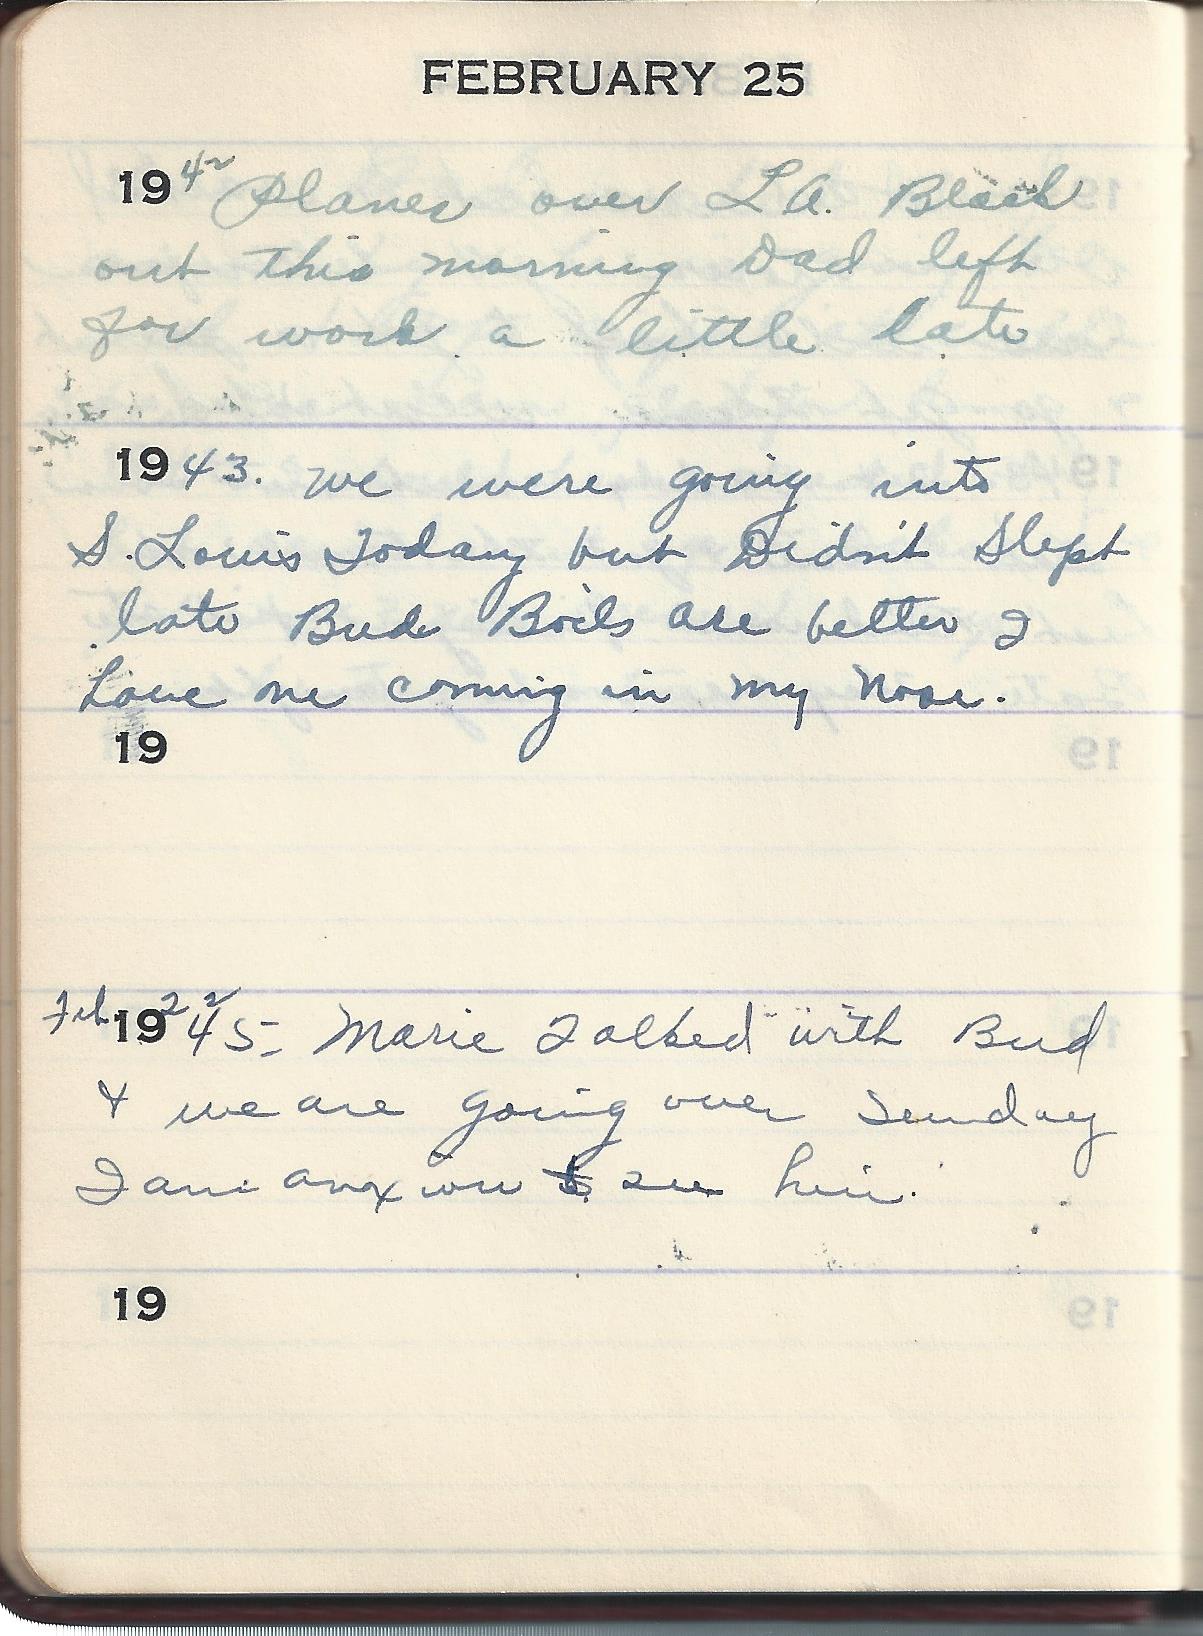 FEBRUARY 25
1942 Planes over L.A. Black
out this morning Dad left
for work a little late
1943. we were going into
S. Louis Today but Didn't Slept
late Buds Boils are better I
have one coming in my nose.
19
Feb 22
1945- Marie Talked with Bud
& we are going over Sunday
I am anxious to see him.
19